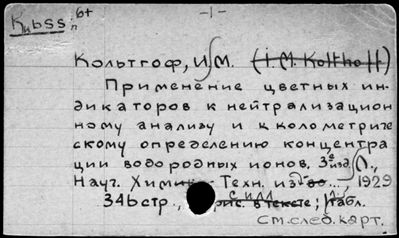 Kubss
6+
n
-1-
Кольтгоф, И М. (I. M. Kolthoff)
Применение цветных ин-
дикаторов к нейтрализацион
ному анализу и к колометриче
скому определению концентра
ции водородных ионов. 3е изд. Л.,
Науч. Хим.- Техн. изд-во..., 1929
346 стр., рис. в тексте; табл.
См. след. карт.